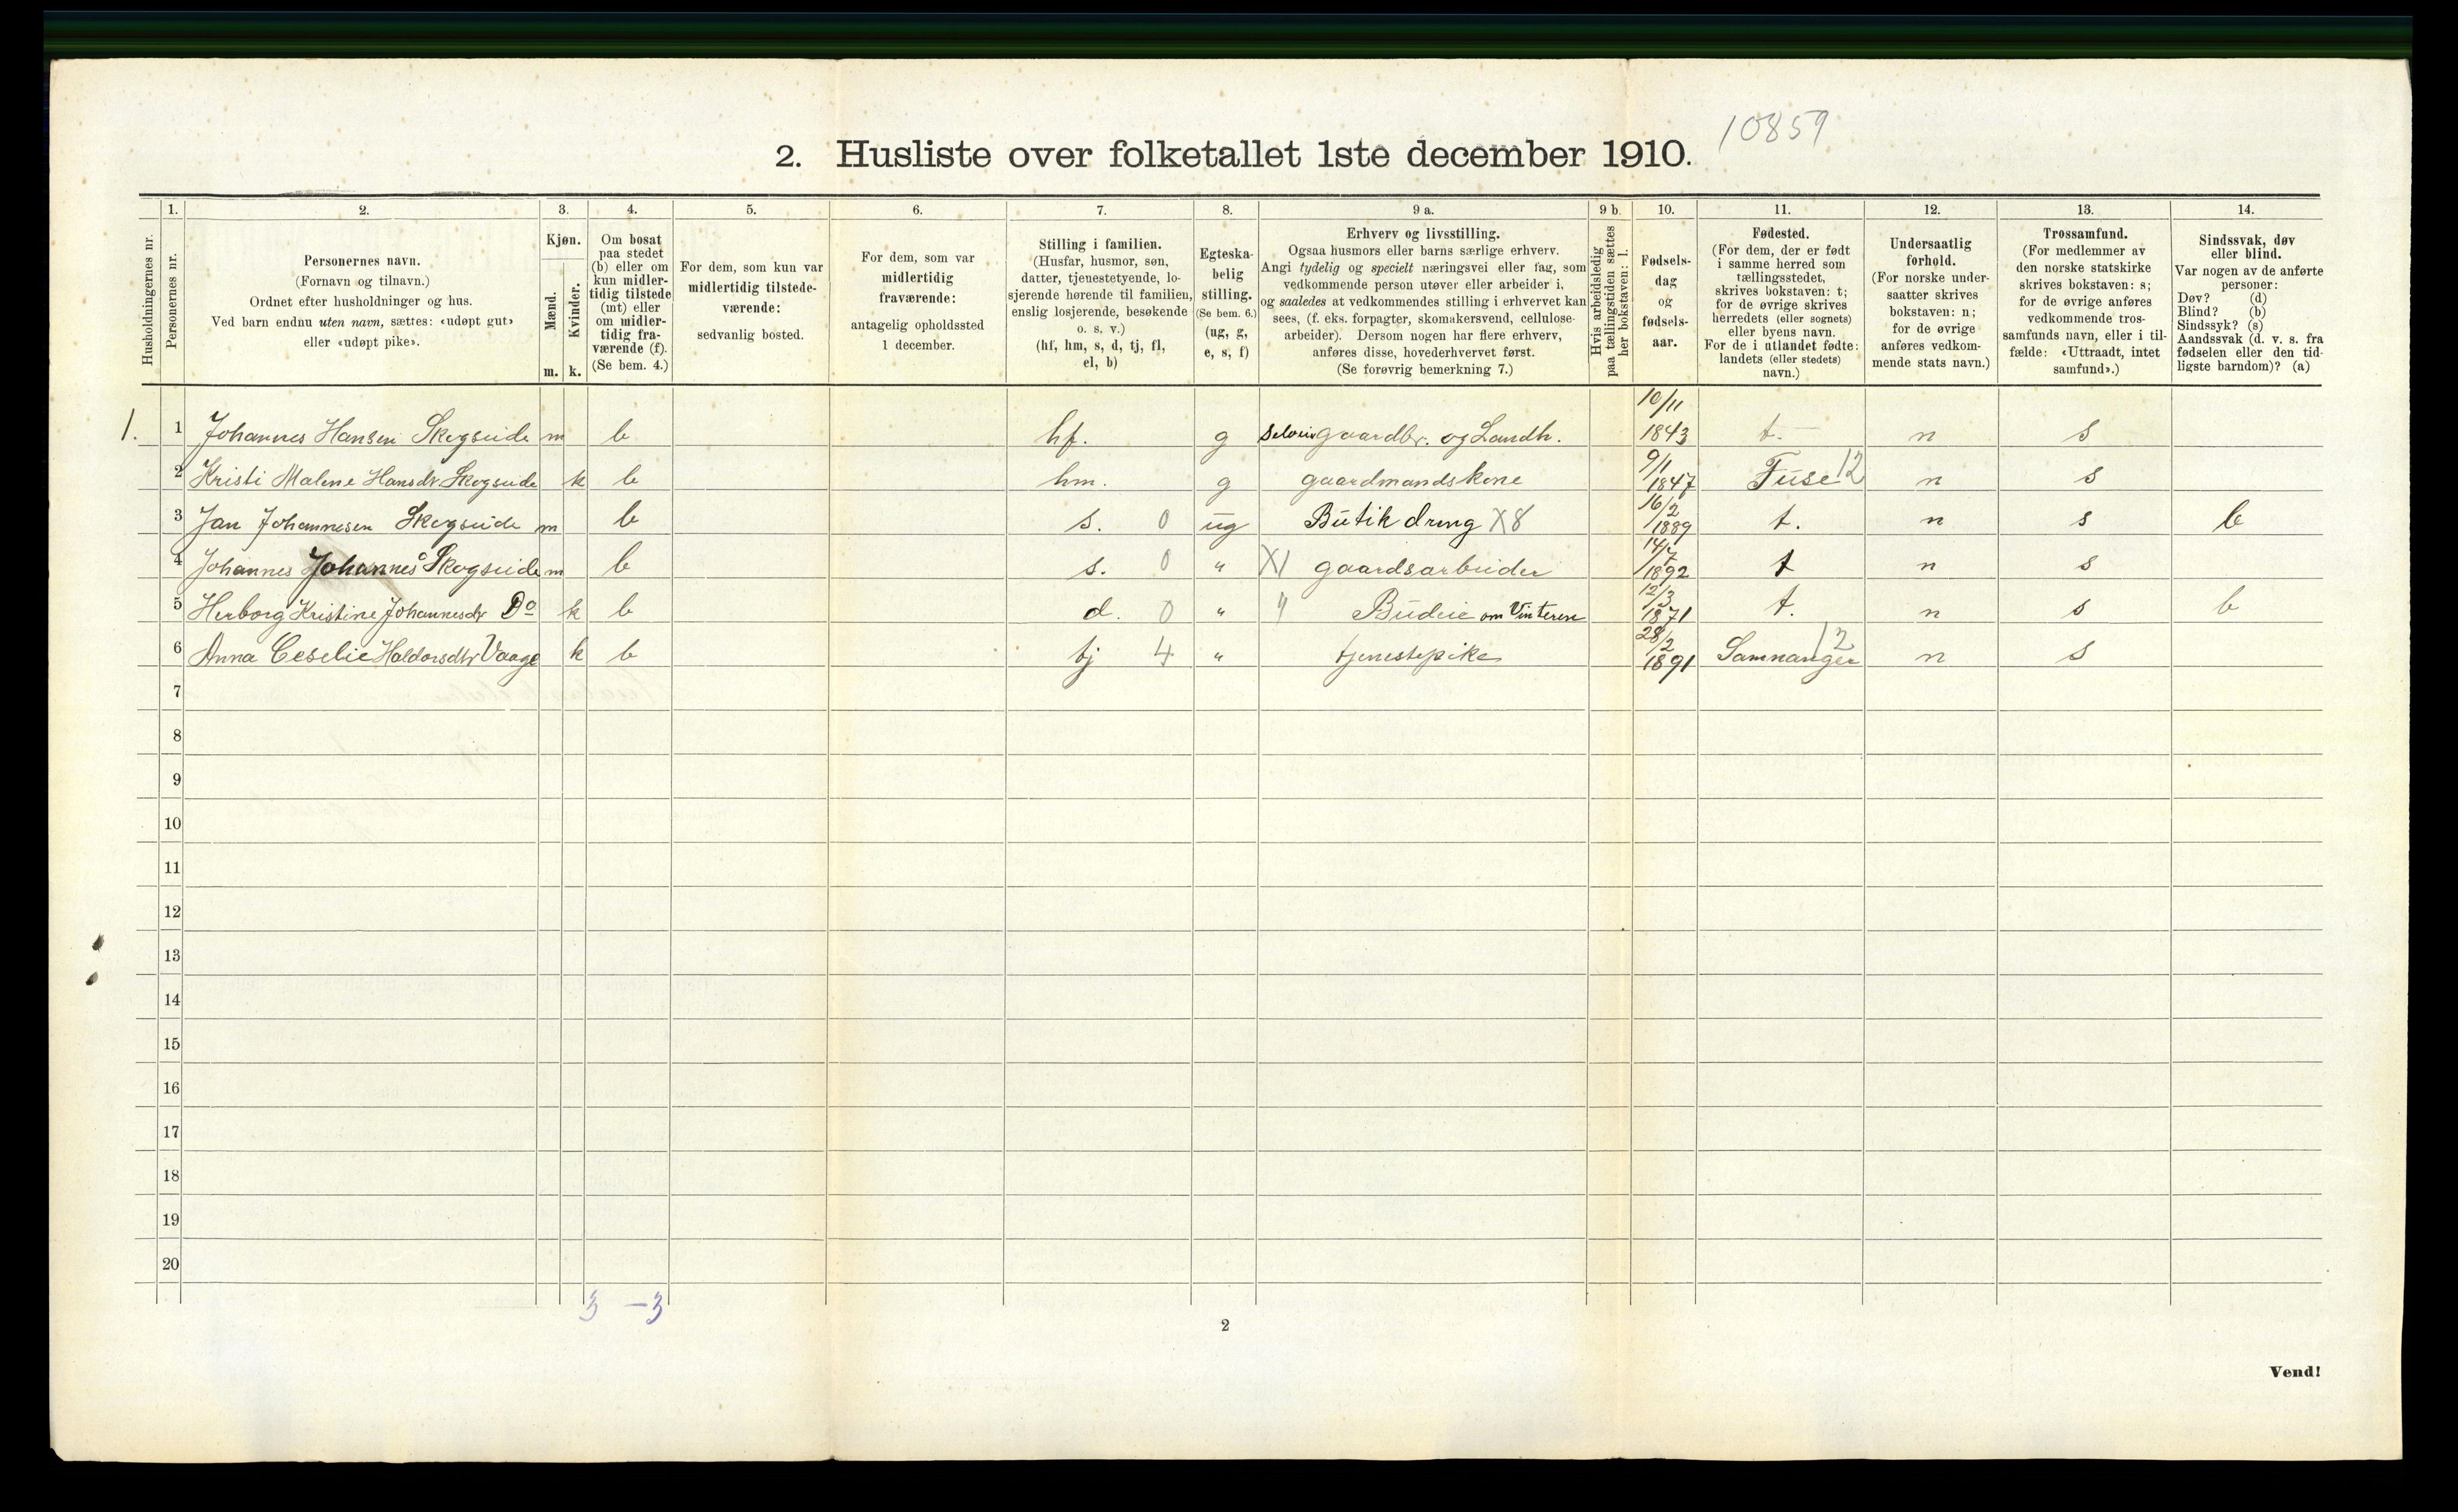 10859
2. Husliste over folketallet 1ste december 1910.
Husholdningernes nr.
1.
Personernes nr.
2.
Personernes navn.
(Fornavn og tilnavn.)
Ordnet efter husholdninger og hus.
Ved barn endnu uten navn, sættes: «udøpt gut»
eller «udøpt pike».
3.
Kjøn.
Mænd.
Kvinder.
m. k.
4.
Om bosat
paa stedet
(b) eller om
kun midler-
tidig tilstede
(mt) eller
om midler-
tidig fra-
værende (f).
(Se bem. 4.)
5.
For dem, som kun var
midlertidig tilstede-
værende:
sedvanlig bosted.
6.
For dem, som var
midlertidig
fraværende:
antagelig opholdssted
1 december.
7.
Stilling i familien.
(Husfar, husmor, søn,
datter, tjenestetyende, lo-
sjerende hørende til familien,
enslig losjerende, besøkende
o. s. v.)
(hf, hm, s, d, tj, fl,
el, b)
8.
Egteska-
belig
stilling.
(Se bem. 6.)
(ug, g,
e, s, f)
9 a.
Erhverv og livsstilling.
Ogsaa husmors eller barns særlige erhverv.
Angi tydelig og specielt næringsvei eller fag, som
vedkommende person utøver eller arbeider i,
og saaledes at vedkommendes stilling i erhvervet kan
sees, (f. eks. forpagter, skomakersvend, cellulose-
arbeider). Dersom nogen har flere erhverv,
anføres disse, hovederhvervet først.
(Se forøvrig bemerkning 7.)
9 b.
Hvis arbeidsledig
paa tællingstiden sættes
her bokstaven: l.
10.
Fødsels-
dag
og
fødsels-
aar.
11.
Fødested.
(For dem, der er født
i samme herred som
tællingsstedet,
skrives bokstaven: t;
for de øvrige skrives
herredets (eller sognets)
eller byens navn.
For de i utlandet fødte:
landets (eller stedets)
navn.)
12.
Undersaatlig
forhold.
(For norske under-
saatter skrives
bokstaven: n;
for de øvrige
anføres vedkom-
mende stats navn.)
13.
Trossamfund.
(For medlemmer av
den norske statskirke
skrives bokstaven: s;
for de øvrige anføres
vedkommende tros-
samfunds navn, eller i til-
fælde: «Uttraadt, intet
samfund».)
14.
Sindssvak, døv
eller blind.
Var nogen av de anførte
personer:
Døv? (d)
Blind? (b)
Sindssyk? (s)
Aandssvak (d. v. s. fra
fødselen eller den tid-
ligste barndom)? (a)
1. 1 Johannes Hansen Skogseide m b hf. g Selveiergaardbr. og Landh. 10/11 1843 t. n s
2 Kristi Malene Hansdr Skogseide k b hm. g gaardmandskone 9/1 1847 Fuse 12 n s
3 Jan Johannesen Skogseide m b s. 0 ug Butik dreng X8 16/2 1889 t. n s b
4 Johannes Johannes Skogseide m b s. 0 " X1 gaardsarbeider 14/7 1892 t n s
5 Herborg Kristine Johannesdr Do k b d. 0 " " Budeie om Vinteren 12/3 1871 t. n s b
6 Anna Ceselie Haldorsdtr Vaage k b tj 4 " tjenestepike 28/2 1891 Samnanger 12 n s
7
8
9
10
11
12
13
14
15
16
17
18
19
20
3 – 3
2
Vend!